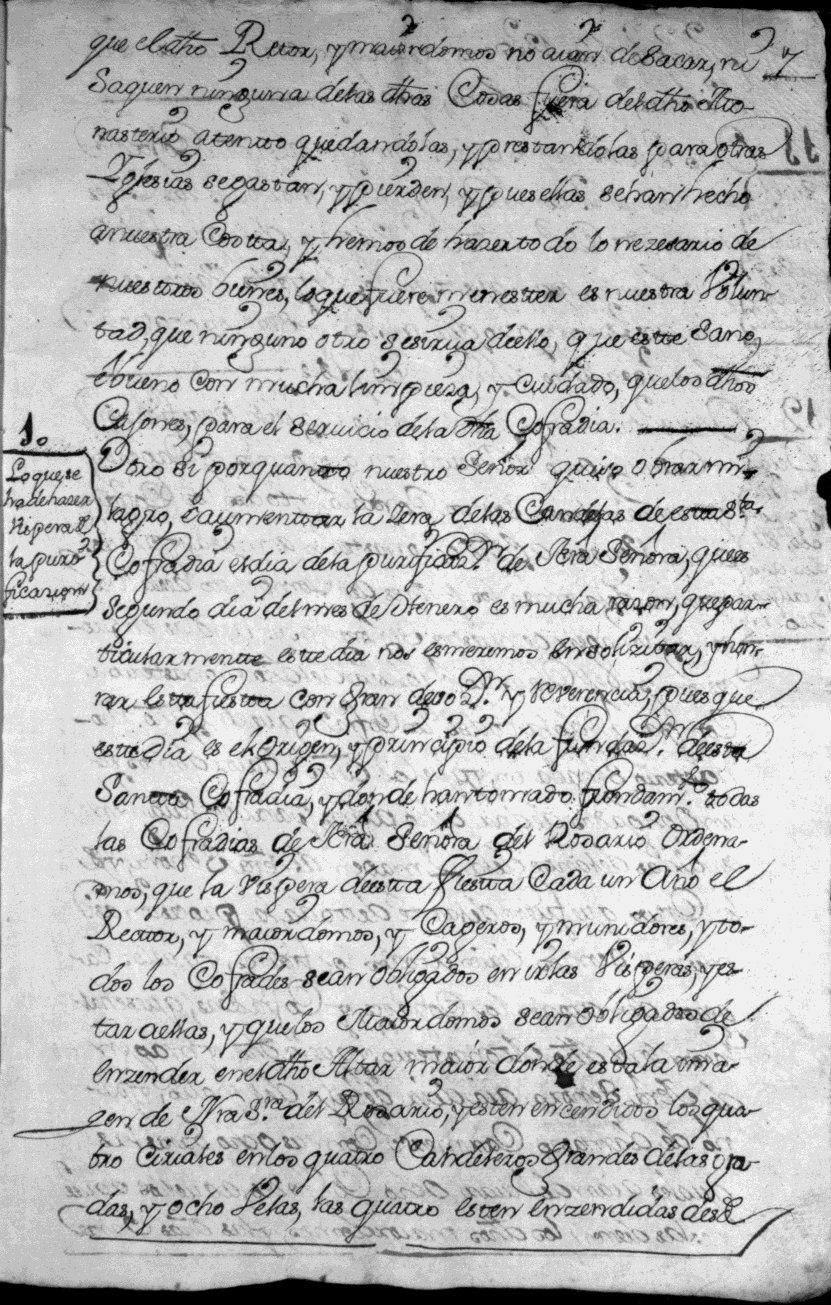 que el dho Rector, y maiordomos no aian de sacar, ni
7
Saquen ninguna delas dhas Cosas fuera del dho Mo-
nasterio atento quedandolas, y prestandolas para otras
Yglesias segastan, y pierden, y pues ellas sehan hecho
anuestra Costta, y hemos de hazer todo lo nezesario de
nuestros bienes, loque fuere menester es nuestra Volun-
tad, que ninguno otro sesirua deello, que este Sano,
ebueno con mucha limpieza, y cuidado, quelos dhos
Cajones, para el servicio de la dha Cofradia.
1o
Loquese
ha de hazer
Vispera de
la puri-
ficazion
Otro si porquanto nuestro Señor quiso obrar mi-
lagro, eaumenttar la zera delas Candelas de esta Sta
Cofradia eldia dela purificazon de Nra Señora, quees
segundo dia del mes de henero es mucha razon, quepar-
ticularmente este dia nos esmeremos en solizitar, y hon-
rar esta fiesta con Gran devozon y reverencia, pues que
este dia es el origen, y principio dela fundazon deesta
Sancta Cofradia, y donde hantomado fundamto todas
las Cofradias de Nra Señora del Rosario Ordena-
mos, que la vispera deesta fiesta Cada un Año el
Rector, y maiordomos, y Cageros, y munidores, y to-
dos los Cofrades sean obligados en ir alas Visperas, y es-
tar aellas, y quelos Maiordomos sean obligados de
enzender enel dho Altar maior donde esta la ima-
gen de Nra Sra del Rosario, y esten encendidos los qua-
tro Ciriales enlos quatro Candeleros Grandes delas gra-
das, y ocho Velas, las quatro esten enzendidas desde